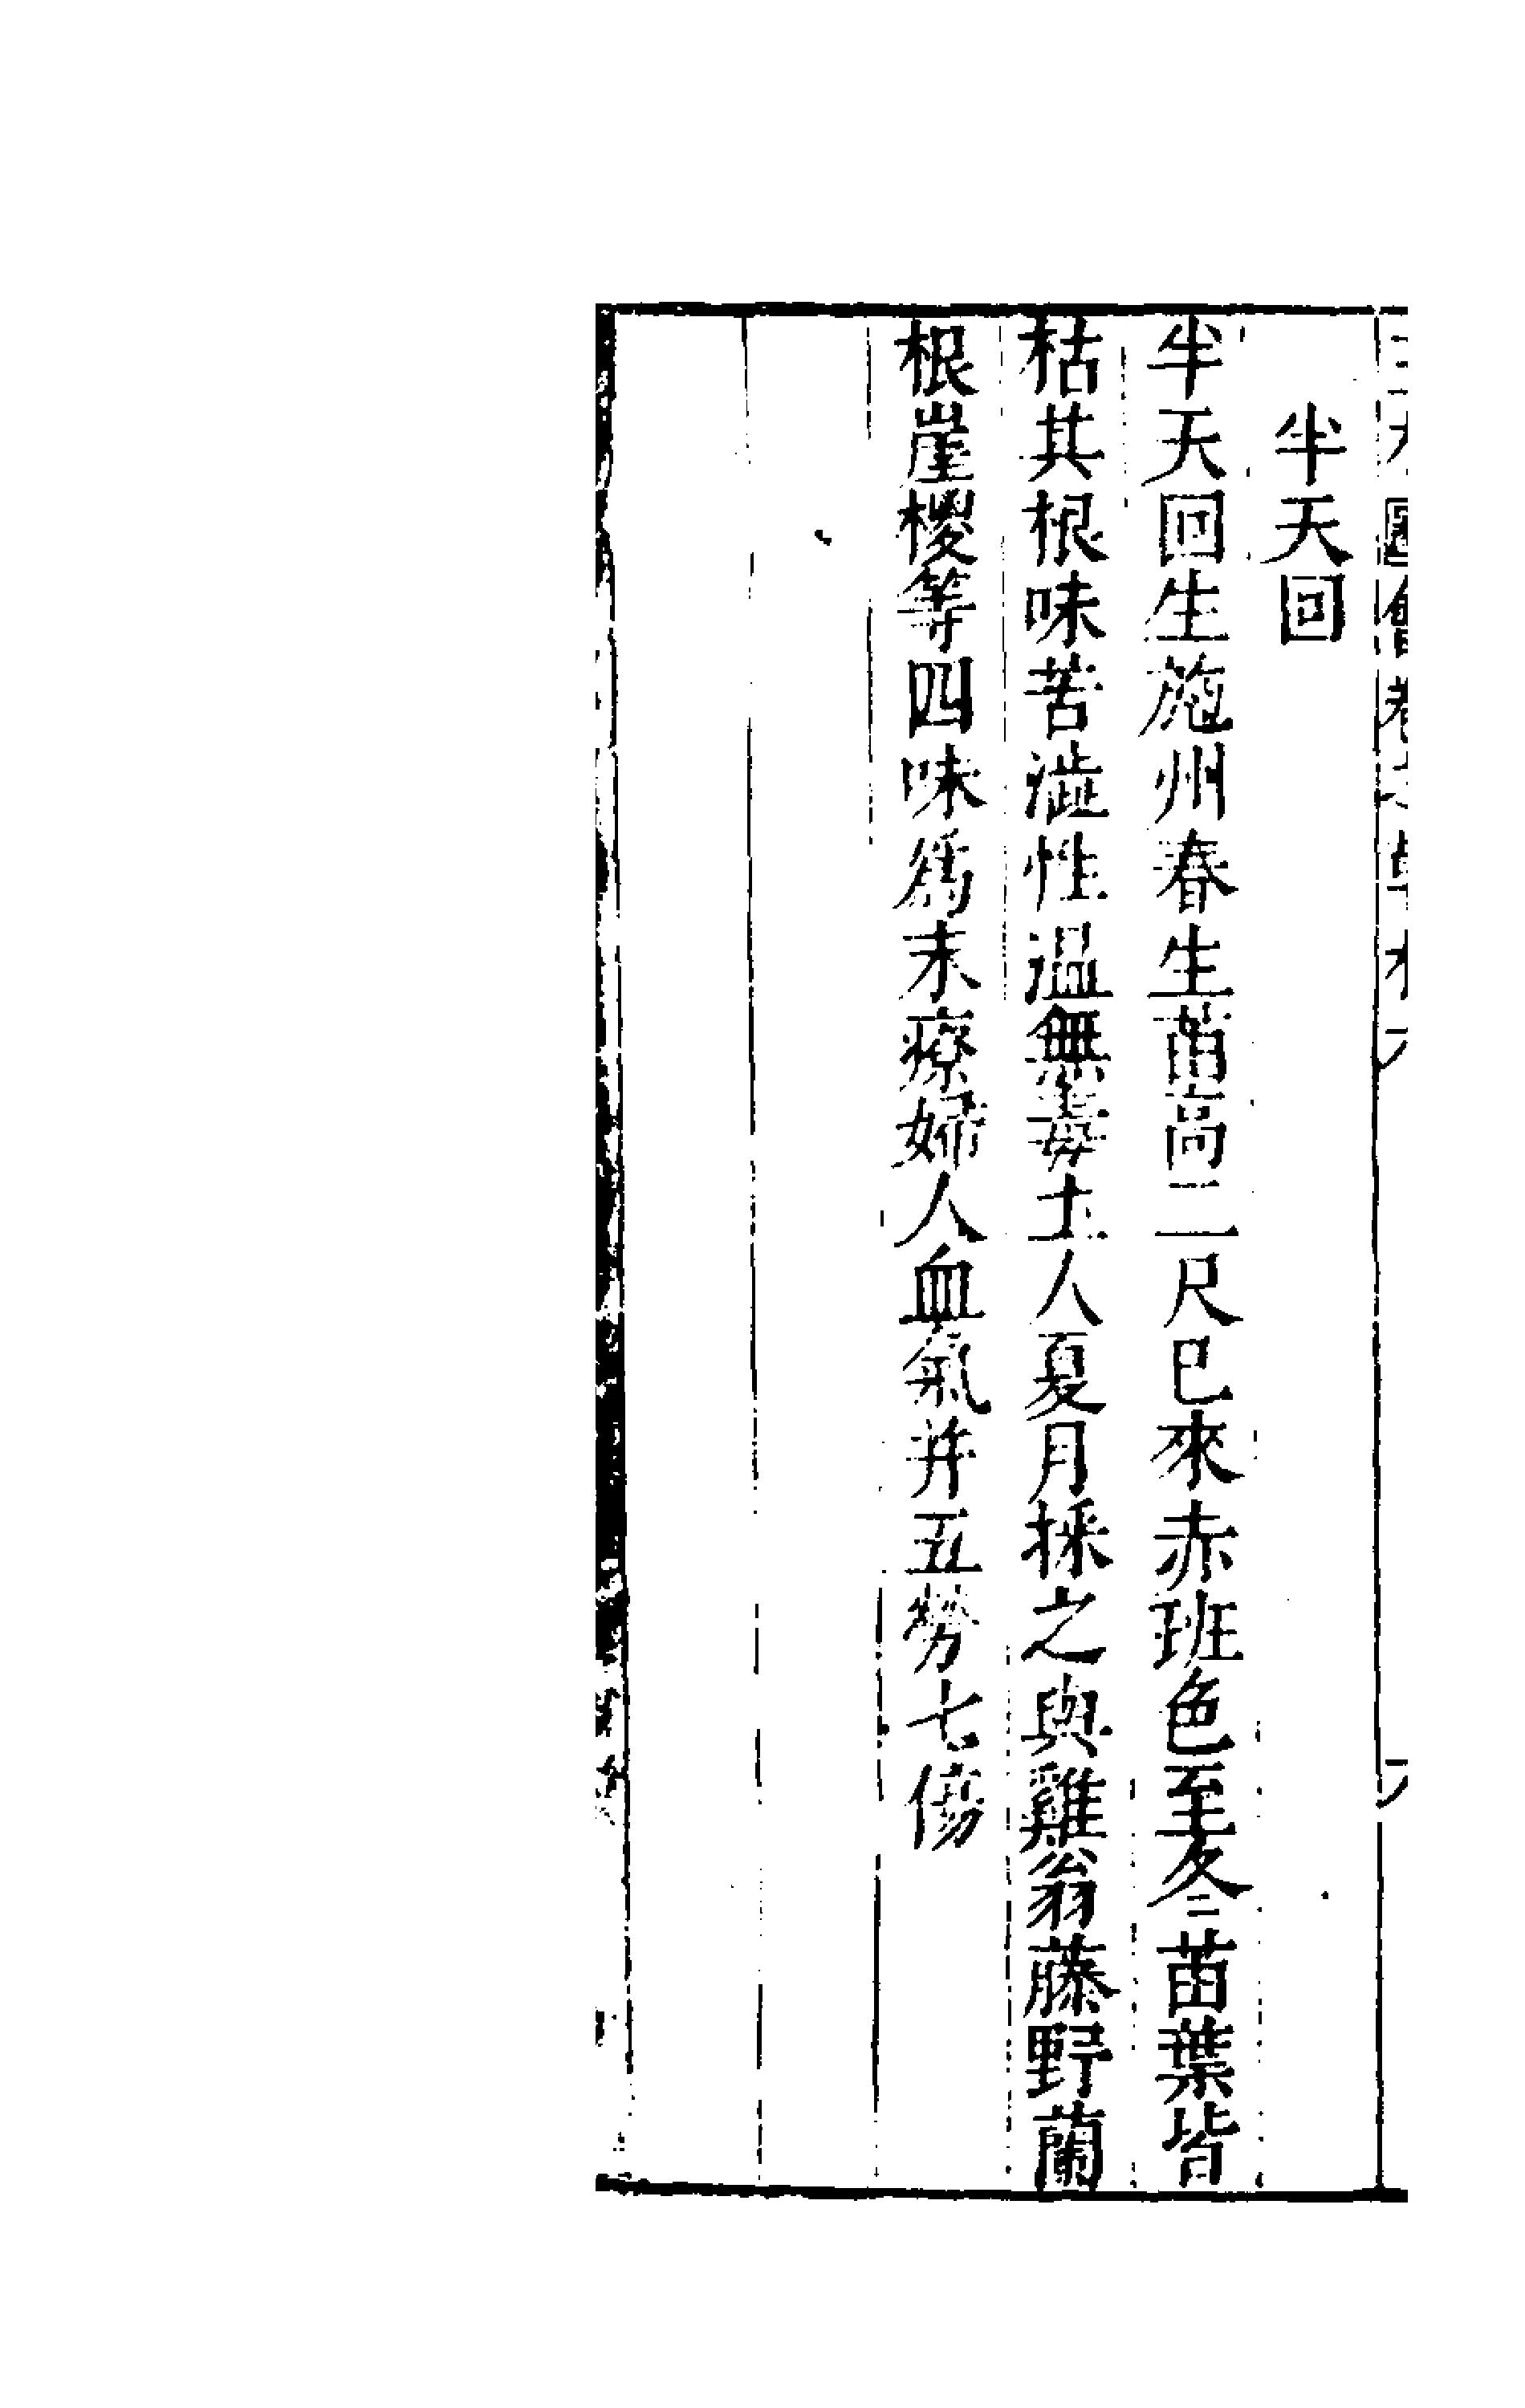 半天回
半天回生施州春生苗高二尺已來赤班色至冬苗葉皆
枯其根味苦澁性温無毒土人夏月採之與雞翁藤野蘭
根崖椶等四味爲末療婦人血氣并五勞七傷